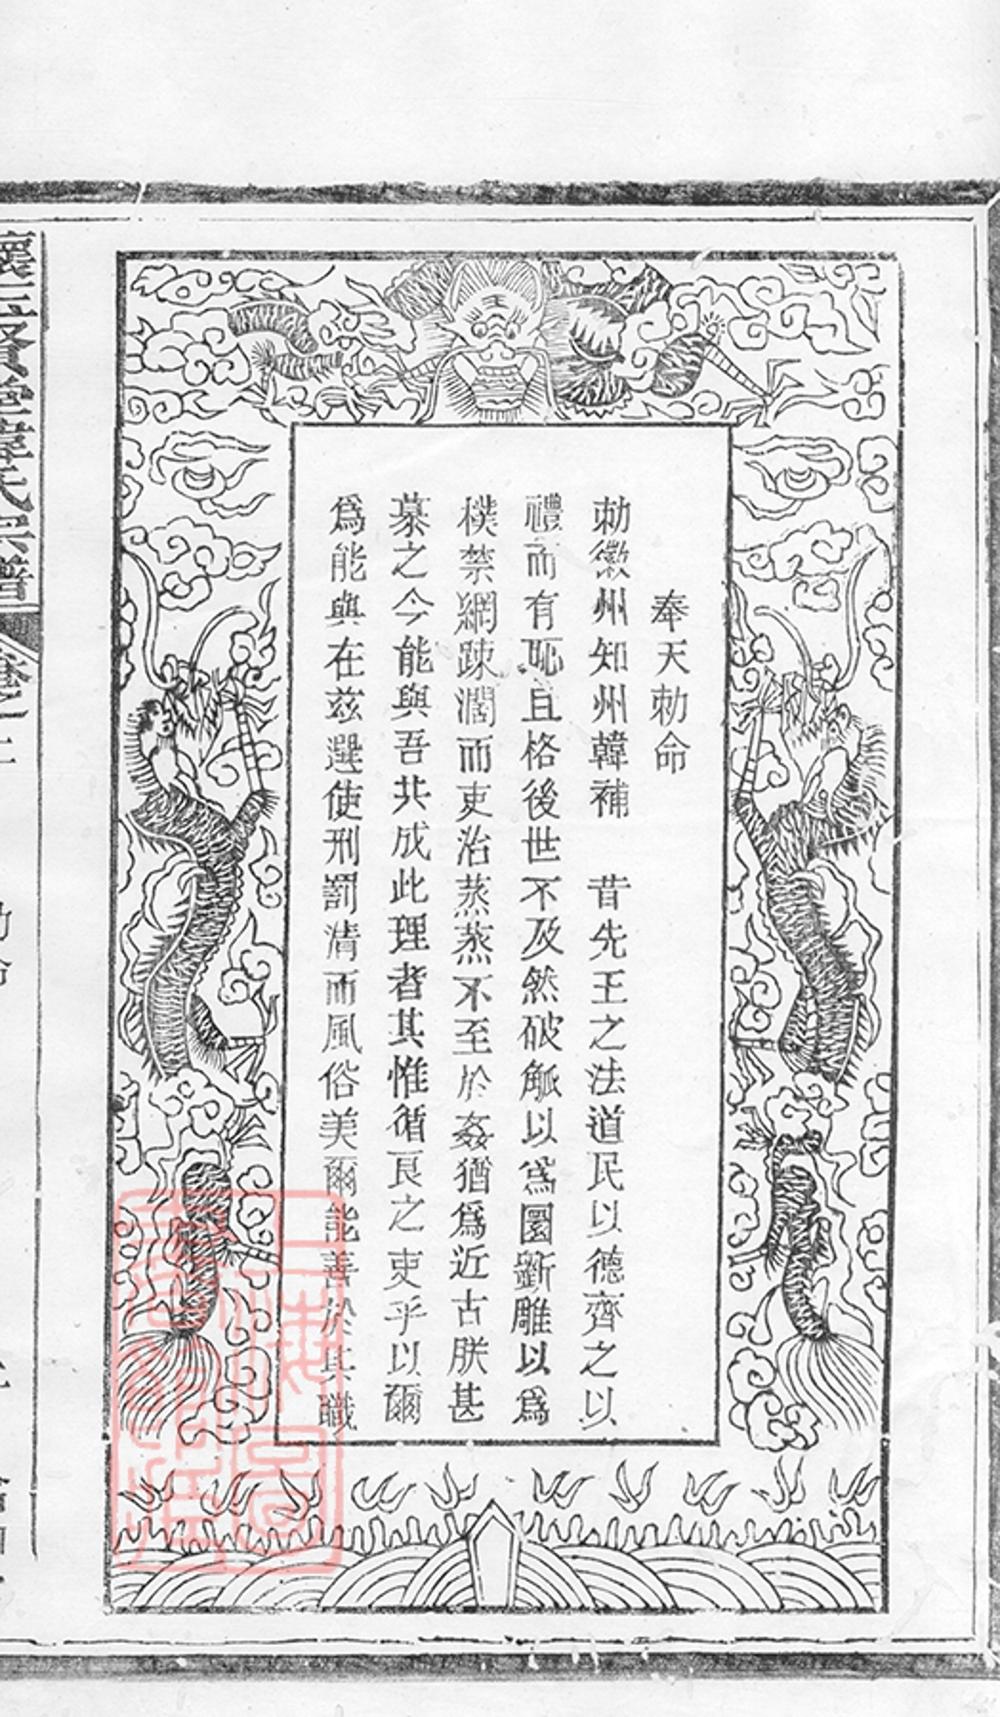 奉天勅命
勅徽州知州韓補　昔先王之法道民以德齊之以
禮而有恥且格後世不及然破觚以爲圜斵雕以爲
樸禁網踈濶而吏治蒸蒸不至於姦猶爲近古朕甚
慕之今能與吾共成此理者其惟循良之吏乎以爾
爲能與在茲選使刑罰清而風俗美爾能善於其職
賢堂韓氏宗譜
卷之十
勅命